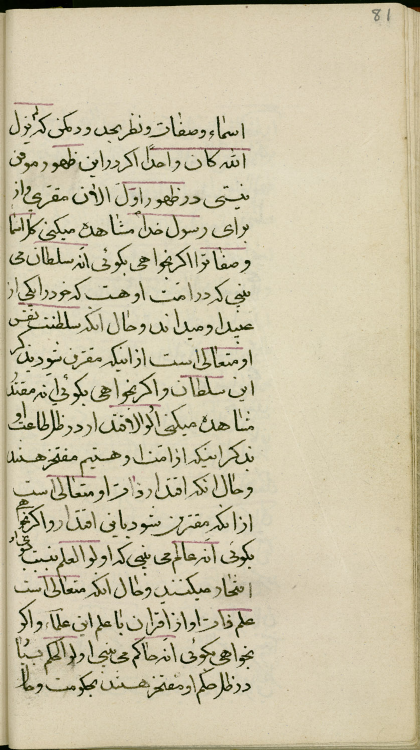 81
اسماء و صفات و نظر بحد و دمکن که لم یزل
الله کان واحدا اکر در این ظهور موقن
نیستی در ظهور اول الان مقری و از
برای رسول خدا مشاهده میکنی کل اسما
و صفات را اکر بخواهی بکوئی انه سلطان می
بینی که در امت او هست که خود را یکی از
عبید او میداند و حال آنکه سلطنت نفس
او متعالی است از اینکه مقترن شود بذکر
این سلطان و اکر بخواهی بکوئی انه مقتدر
مشاهده میکنی اولو الاقتدار در ظل طاعت او
بذکر اینکه از امت او هستیم مفتخر هستند
و حال آنکه اقتدار ذات او متعالی است
از آنکه مقترن شود باین اقتدار و اکر بخواهی
بکوئی انه عالم می بینی که اولو العلم به نسبت باو
افتخار میکنند و حال آنکه متعالی است
علم ذات او از اقتران با علم این علماء و اکر
بخواهی بکوئی انه حاکم می بینی اولو الحکم
در ظل حکم او مفتخر هستند بحکومت و حال